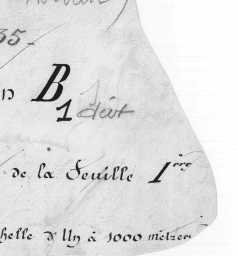 35.-
n B
1
de la Feuille 1ère
helle d'Un à 1000 mètres